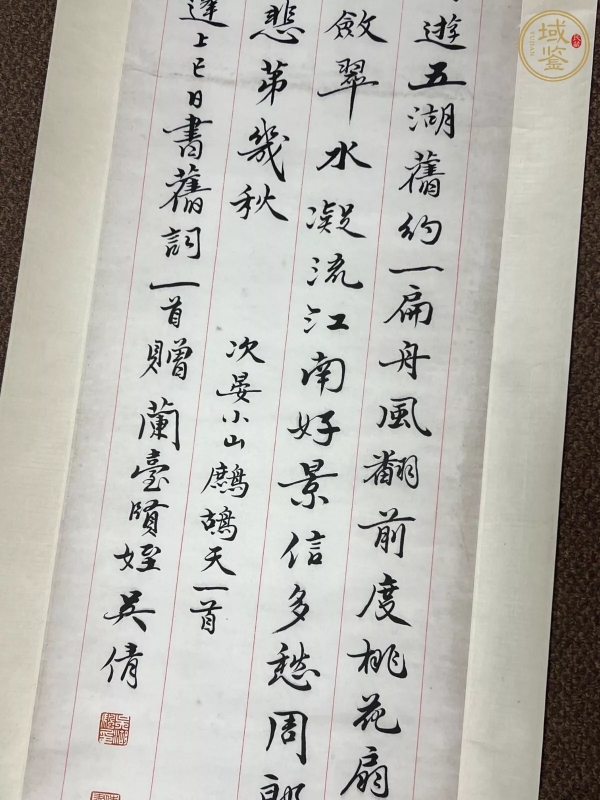 遊五湖舊約一扁舟風翻前度桃花扇
斂翠水凝流江南好景信多愁周郎
悲第幾秋
次晏小山鷓鴣天一首
逢上巳日書舊詞一首贈蘭臺賢姪吳倩
域鑒
YUJIAN